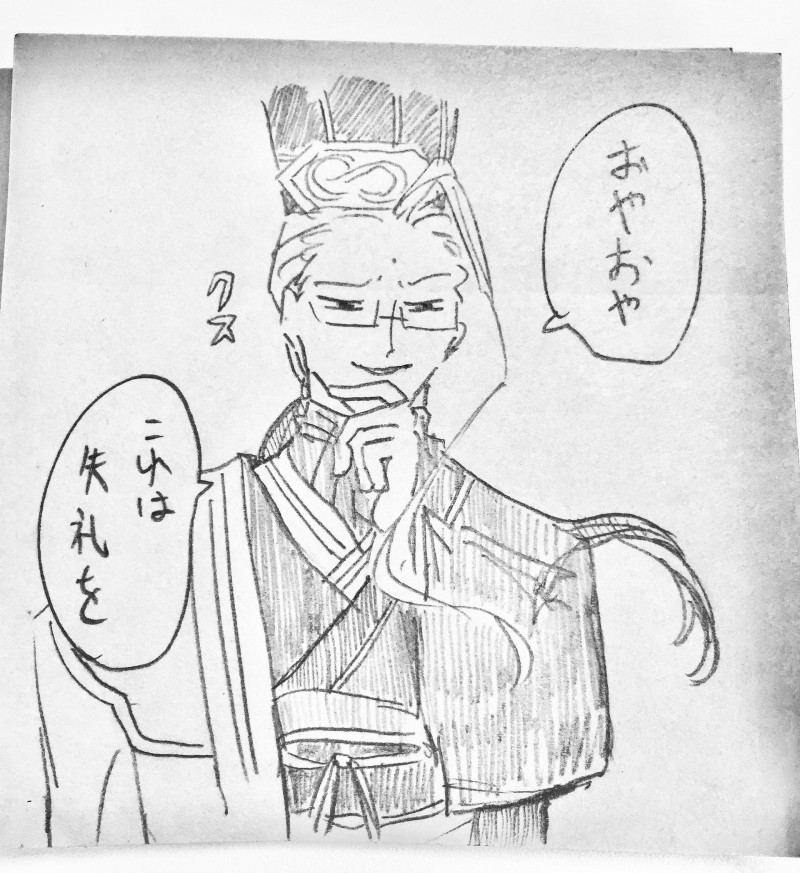 おやおや
クス
これは
失礼を